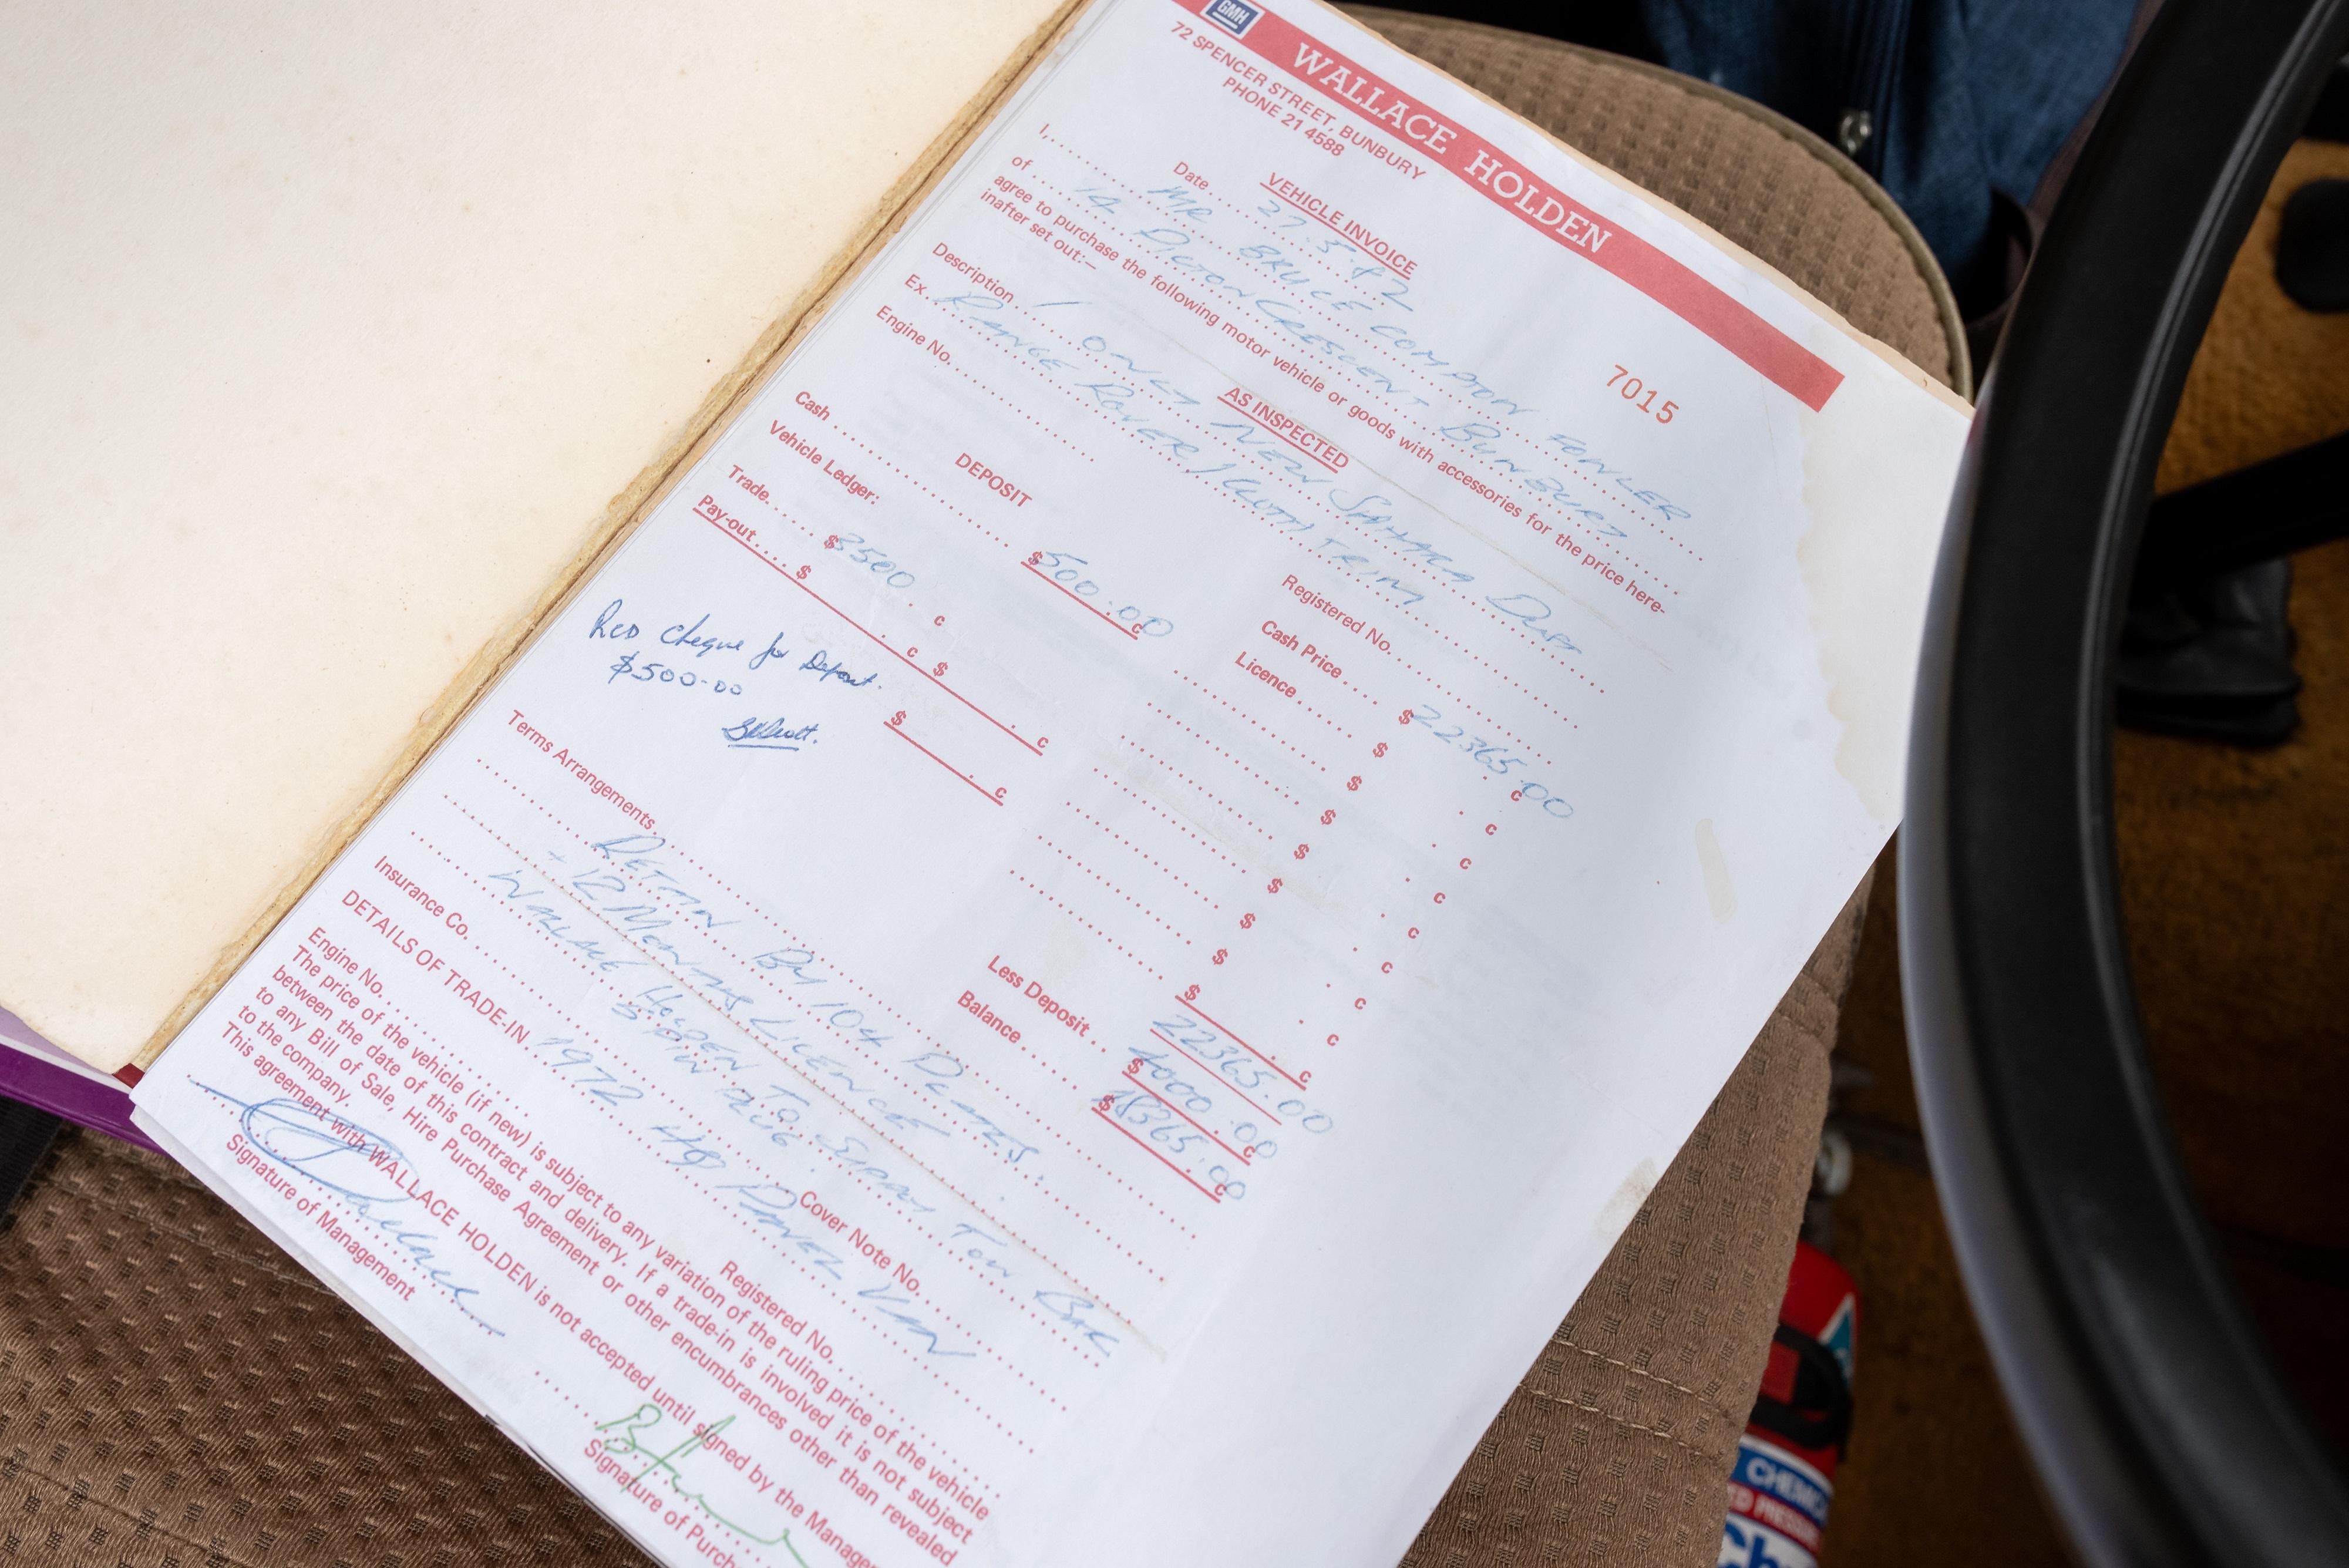 GMH
WALLACE HOLDEN
72 SPENCER STREET, BUNBURY
PHONE 21 4588
7015
VEHICLE INVOICE
Date 27.5.82
I, MR BRUCE COMPTON FOWLER
of 14 DICTON CRESCENT BUNBURY
agree to purchase the following motor vehicle or goods with accessories for the price here-
inafter set out:—
AS INSPECTED
Description 1 ONLY NEW SAHARA DUST
Ex. RANGE ROVER / CLOTH TRIM
Engine No. Registered No.
Cash DEPOSIT $500.00 c Cash Price $22365.00 c
Vehicle Ledger: Licence $ . c
Trade $3500 c
Pay-out $ . c $ . c
$ . c
$ . c
$ . c
$ . c
$ . c
$ . c
$ . c
Rcd Cheque for Deposit.
$500-00
$ 22365.00 c
Less Deposit $4000.00 c
Balance $18365.00 c
Terms Arrangements
RETAIN BY 104 DEALERS
+ 12 MONTHS LICENCE
WALLACE HOLDEN TO SUPPLY TOW BAR
5 PIN PLUG
Insurance Co. Cover Note No.
DETAILS OF TRADE-IN 1972 HQ PANEL VAN
Engine No. Registered No.
The price of the vehicle (if new) is subject to any variation of the ruling price of the vehicle
between the date of this contract and delivery. If a trade-in is involved it is not subject
to any Bill of Sale, Hire Purchase Agreement or other encumbrances other than revealed
to the company.
This agreement with WALLACE HOLDEN is not accepted until signed by the Manager
Signature of Management
Signature of Purch
CHEMIC